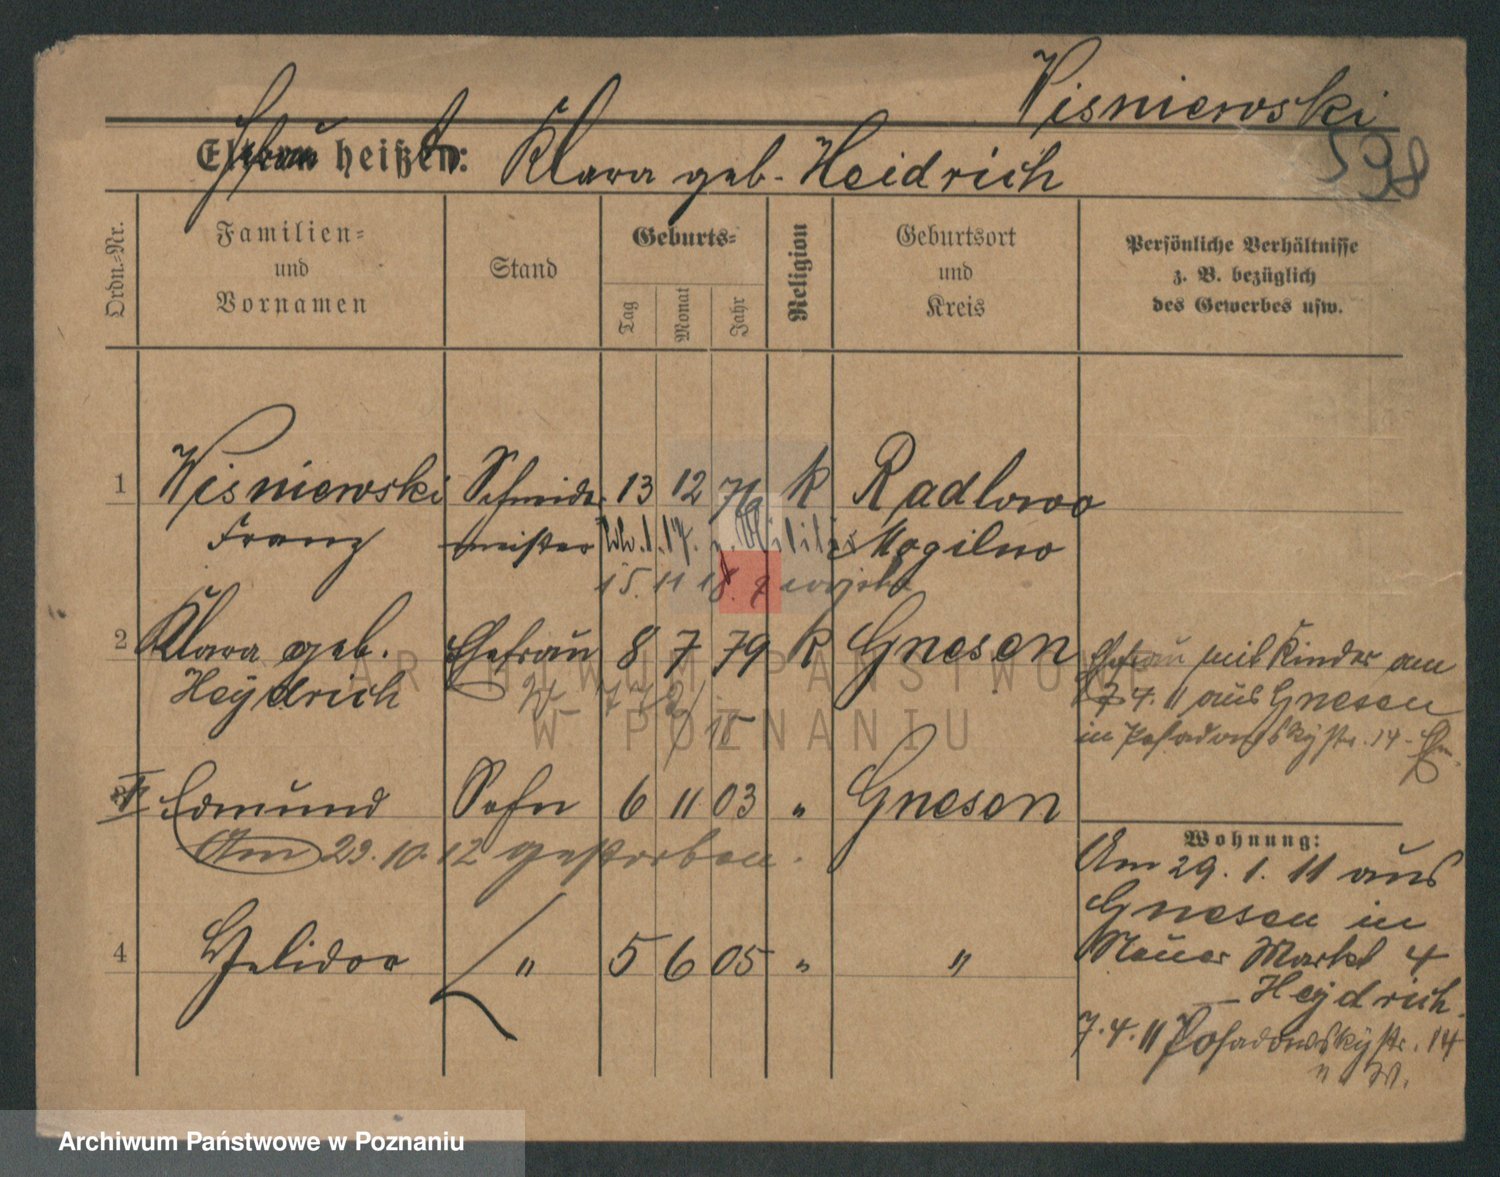 Wisniewski
598
Eltern heißen: Klara geb. Heidrich
Ordn.-Nr.
Familien- und Vornamen
Stand
Geburts-
Tag
Monat
Jahr
Religion
Geburtsort und Kreis
Persönliche Verhältnisse
z. B. bezüglich
des Gewerbes usw.
1 Wisniewski Schneider 13 12 76 k Radlowo
Franz meister 1.17. z. Militär Mogilno
15. 11 18. z
2 Klara geb. Ehefrau 8 7 79 k Gnesen
Heydrich
Ehefrau mit Kinder am
7 4. 11 aus Gnesen
in Posadowskystr. 14
† Edmund Sohn 6 11 03 " Gnesen
Am 29. 10. 12 gestorben.
4 " 5 6 05 " "
Wohnung:
Am 29. 1. 11 aus
Gnesen in
Neuer Markt 4
Heydrich.
7. 4. 11 Posadowskystr. 14
ARCHIWUM PAŃSTWOWE
W POZNANIU
Archiwum Państwowe w Poznaniu